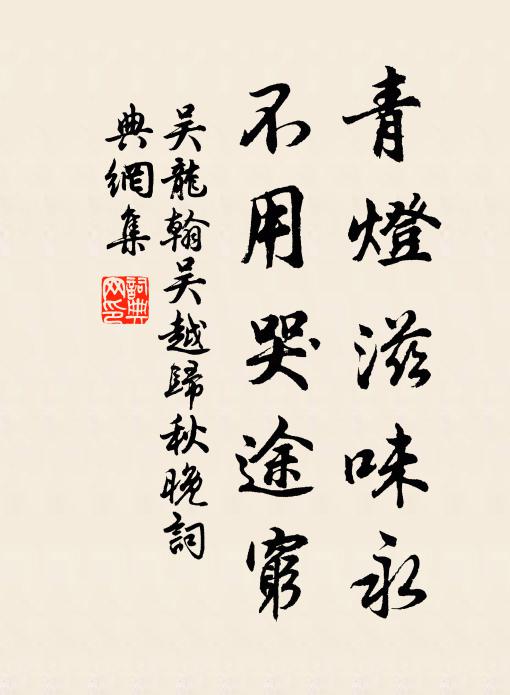 青燈滋味永
不用哭途窮
吳龍翰吳越歸秋晚詞
典網集
詞典
网印